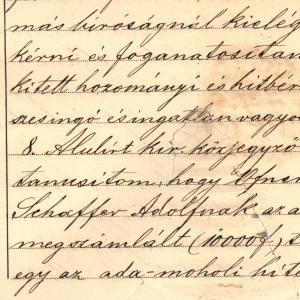 más biróságnál kielég
kérni és foganatositan
kitett hozományi és hitbér
szesingó és ingatlan vagyo
8. Alulirt kir. közjegyző
tanusitom, hogy Ofner
Schaffer Adolfnak az a
megszámlált (10000f) t
egy az ada-moholi hite